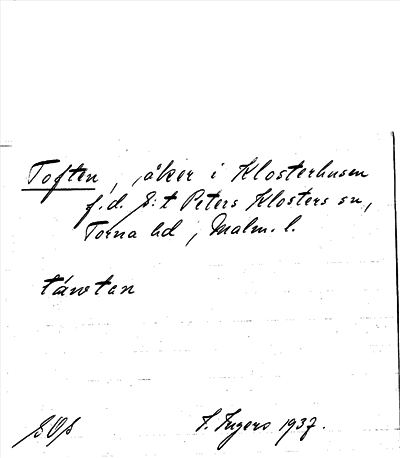 Toften, åker i Klosterhusen
f.d. S:t Peters Klosters sn,
Torna hd, Malm. l.
táwtan
I. Ingers 1937.